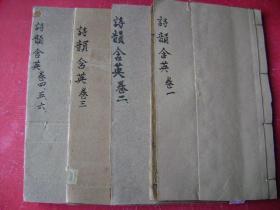 詩韻含英卷一
詩韻含英卷二
詩韻含英卷三
詩韻含英卷四五六